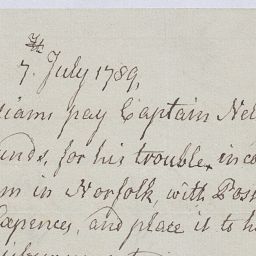 7th. July 1789,
liams pay Captain Nel
unds, for his trouble, in co
m in Norfolk, with Post
Expences, and place it to h